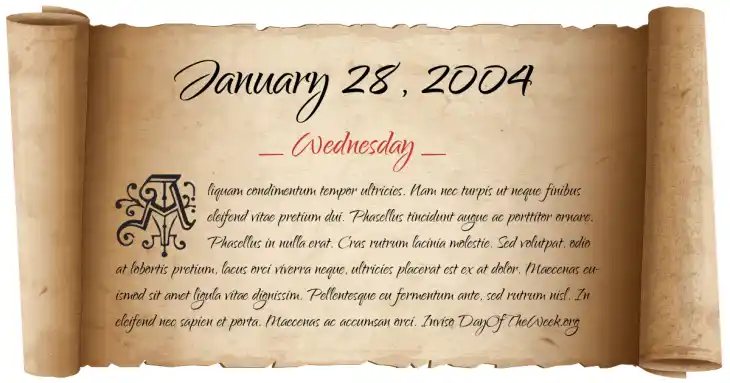 January 28, 2004
_ Wednesday _
Aliquam condimentum tempor ultricies. Nam nec turpis ut neque finibus
eleifend vitae pretium dui. Phasellus tincidunt augue ac porttitor ornare.
Phasellus in nulla erat. Cras rutrum lacinia molestie. Sed volutpat, odio
at lobortis pretium, lacus orci viverra neque, ultricies placerat est ex at dolor. Maecenas eu-
ismod sit amet ligula vitae dignissim. Pellentesque eu fermentum ante, sed rutrum nisl. In
eleifend nec sapien et porta. Maecenas ac accumsan orci. Invisq DayOfTheWeek.org